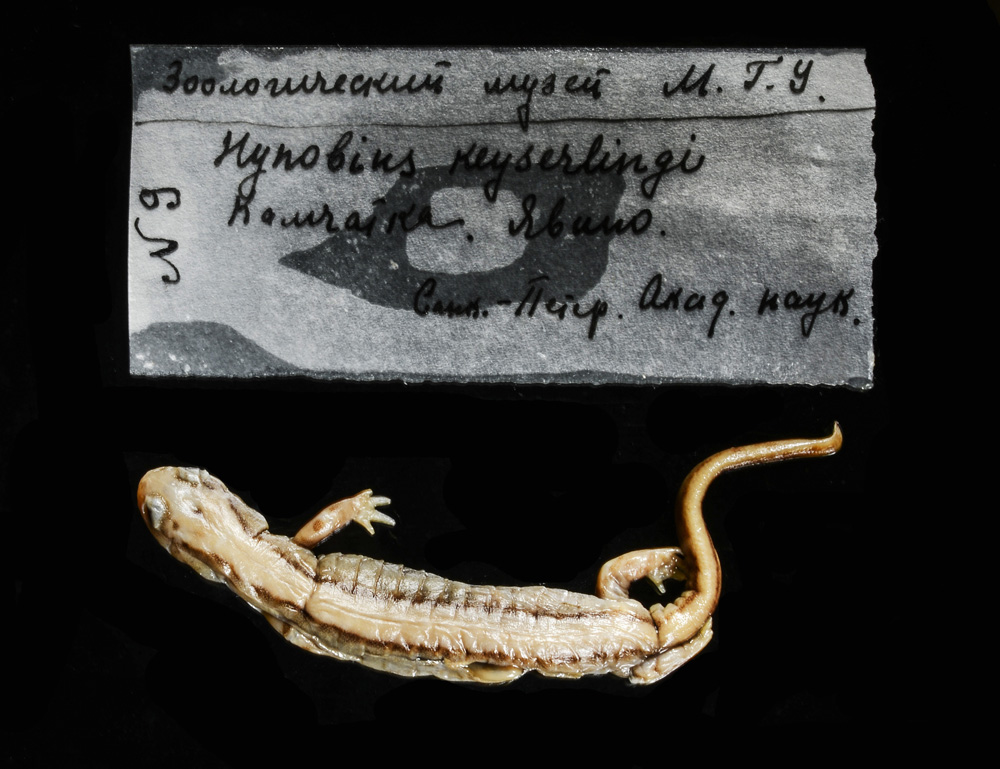 Зоологический музей М. Г. У.
Hynobius keyserlingi
Камчатка. Явино.
Санк.-Петер. Акад. наук.
N 9